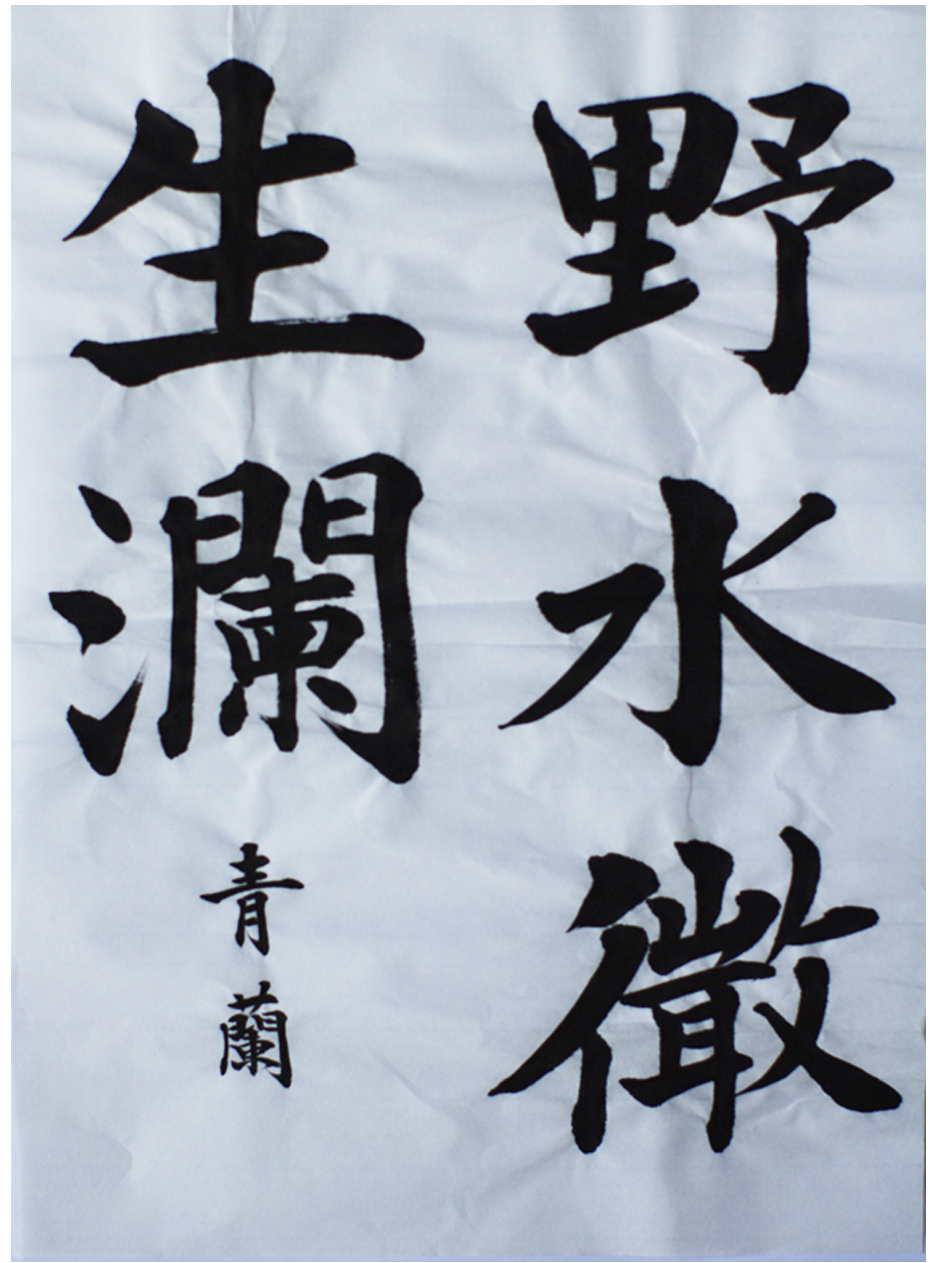 野水微
生瀾
青蘭